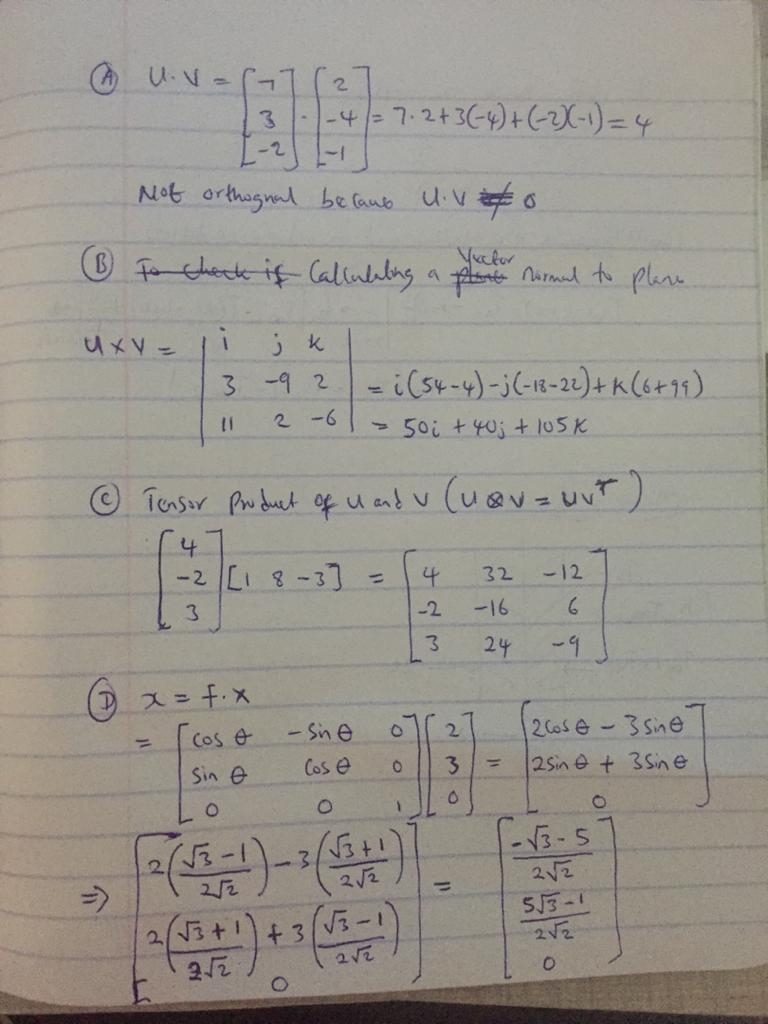 Ⓐ U·V = [7 3 -2] · [2 -4 -1] = 7·2+3(-4)+(-2)(-1) = 4
Not orthognal because U·V ≠ 0
Ⓑ ~~To check if~~ Calculating a ~~plane~~ Vector normal to plane
U×V = |i j k; 3 -9 2; 11 2 -6| = i(54-4)-j(-18-22)+k(6+99)
= 50i + 40j + 105k
Ⓒ Tensor Product of u and v (u⊗v = uvᵀ)
[4 -2 3] [1 8 -3] = [4 32 -12; -2 -16 6; 3 24 -9]
Ⓓ x = f·x
= [cosθ -sinθ 0; sinθ cosθ 0; 0 0 1] [2 3 0] = [2cosθ - 3sinθ; 2sinθ + 3sinθ; 0]
⇒ [2((√3-1)/(2√2)) - 3((√3+1)/(2√2)); 2((√3+1)/(2√2)) + 3((√3-1)/(2√2)); 0] = [(-√3-5)/(2√2); (5√3-1)/(2√2); 0]